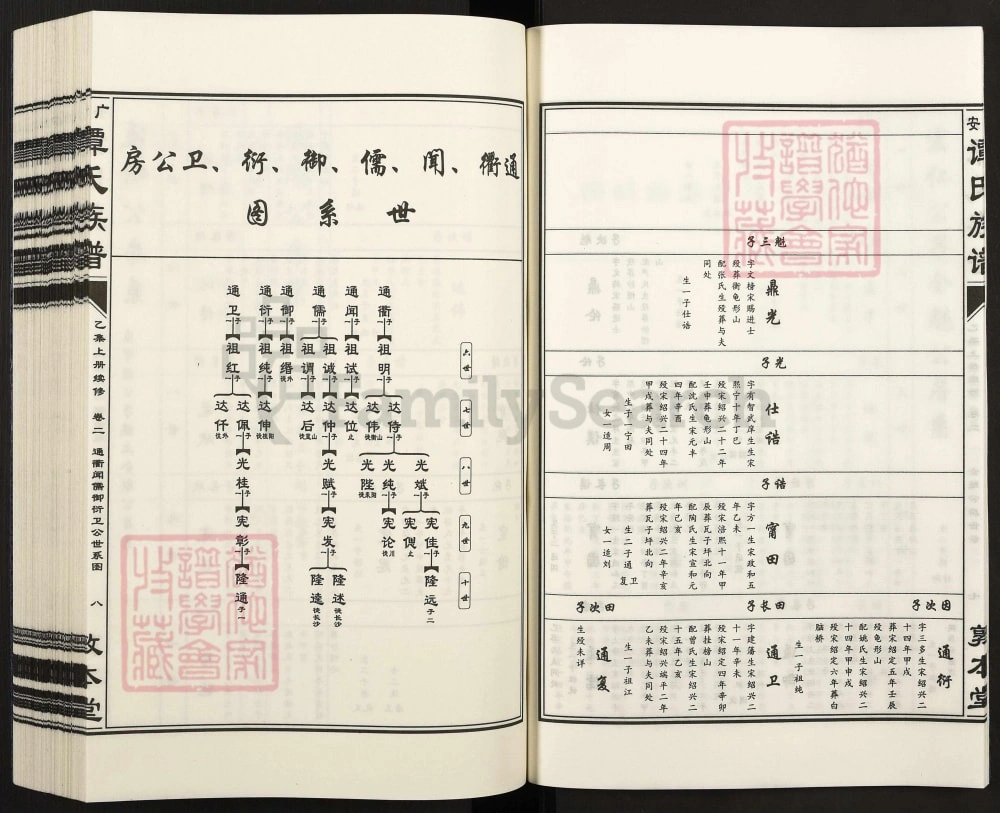 安
谭氏族谱
敦本堂
魁三子
鼎光
字文榜宋赐进士
殁葬衡龟形山
配张氏生殁葬与夫
同处
生一子仕诰
光子
仕诰
字有智武庠生生宋
熙宁十年丁巳
殁宋绍兴二十二年
壬申葬龟形山
配沈氏生宋元丰
四年辛酉
殁宋绍兴二十四年
甲戌葬与夫同处
生子一宁田
女一适周
诰子
甯田
字方一生宋政和五
年乙未
殁宋淳熙十一年甲
辰葬瓦子坪北向
配陶氏生宋宣和元
年己亥
殁宋绍兴二年辛亥
葬瓦子坪北向
生二子通卫复
女一适刘
因次子
通衍
字三多生宋绍兴二
十四年甲戌
葬宋绍定五年壬辰
殁龟形山
配姚氏生宋绍兴二
十四年甲申戌
殁宋绍定六年葬白
脑桥
生一子祖纯
田长子
通卫
字建藩生宋绍兴二
十一年辛未
殁宋绍定四年辛卯
葬挂榜山
配曾氏生宋绍兴二
十五年乙亥
殁宋绍兴端平二年
乙未葬与夫同处
生一子祖江
田次子
通复
生殁未详
通衢、闻、儒、御、衍、卫公房
世系图
六世
七世
八世
九世
十世
通衢 一子
祖明 二子
达侍 三子
达伟 徙衡山
光斌 二子
光纯 一子
光陛 徙耒阳
宪佳 一子
宪偲 止
宪论
隆远 子二
通闻 一子
祖试 一子
达位 止
通儒 二子
祖诚 一子
祖谓 一子
达仲 一子
达后 徙蓝山
光赋 一子
宪发 二子
隆述 徙长沙
隆逵 徙长沙
通御 一子
祖缙 徙外
通衍 一子
祖纯 一子
达伸 徙桂阳
通卫 一子
祖红 二子
达佩 一子
达仟 徙外
光桂 一子
宪彰 一子
隆通 子一
广
谭氏族谱
乙集上册续修 卷二 通衢闻儒御衍卫公世系图 八
敦本堂
FamilySearch